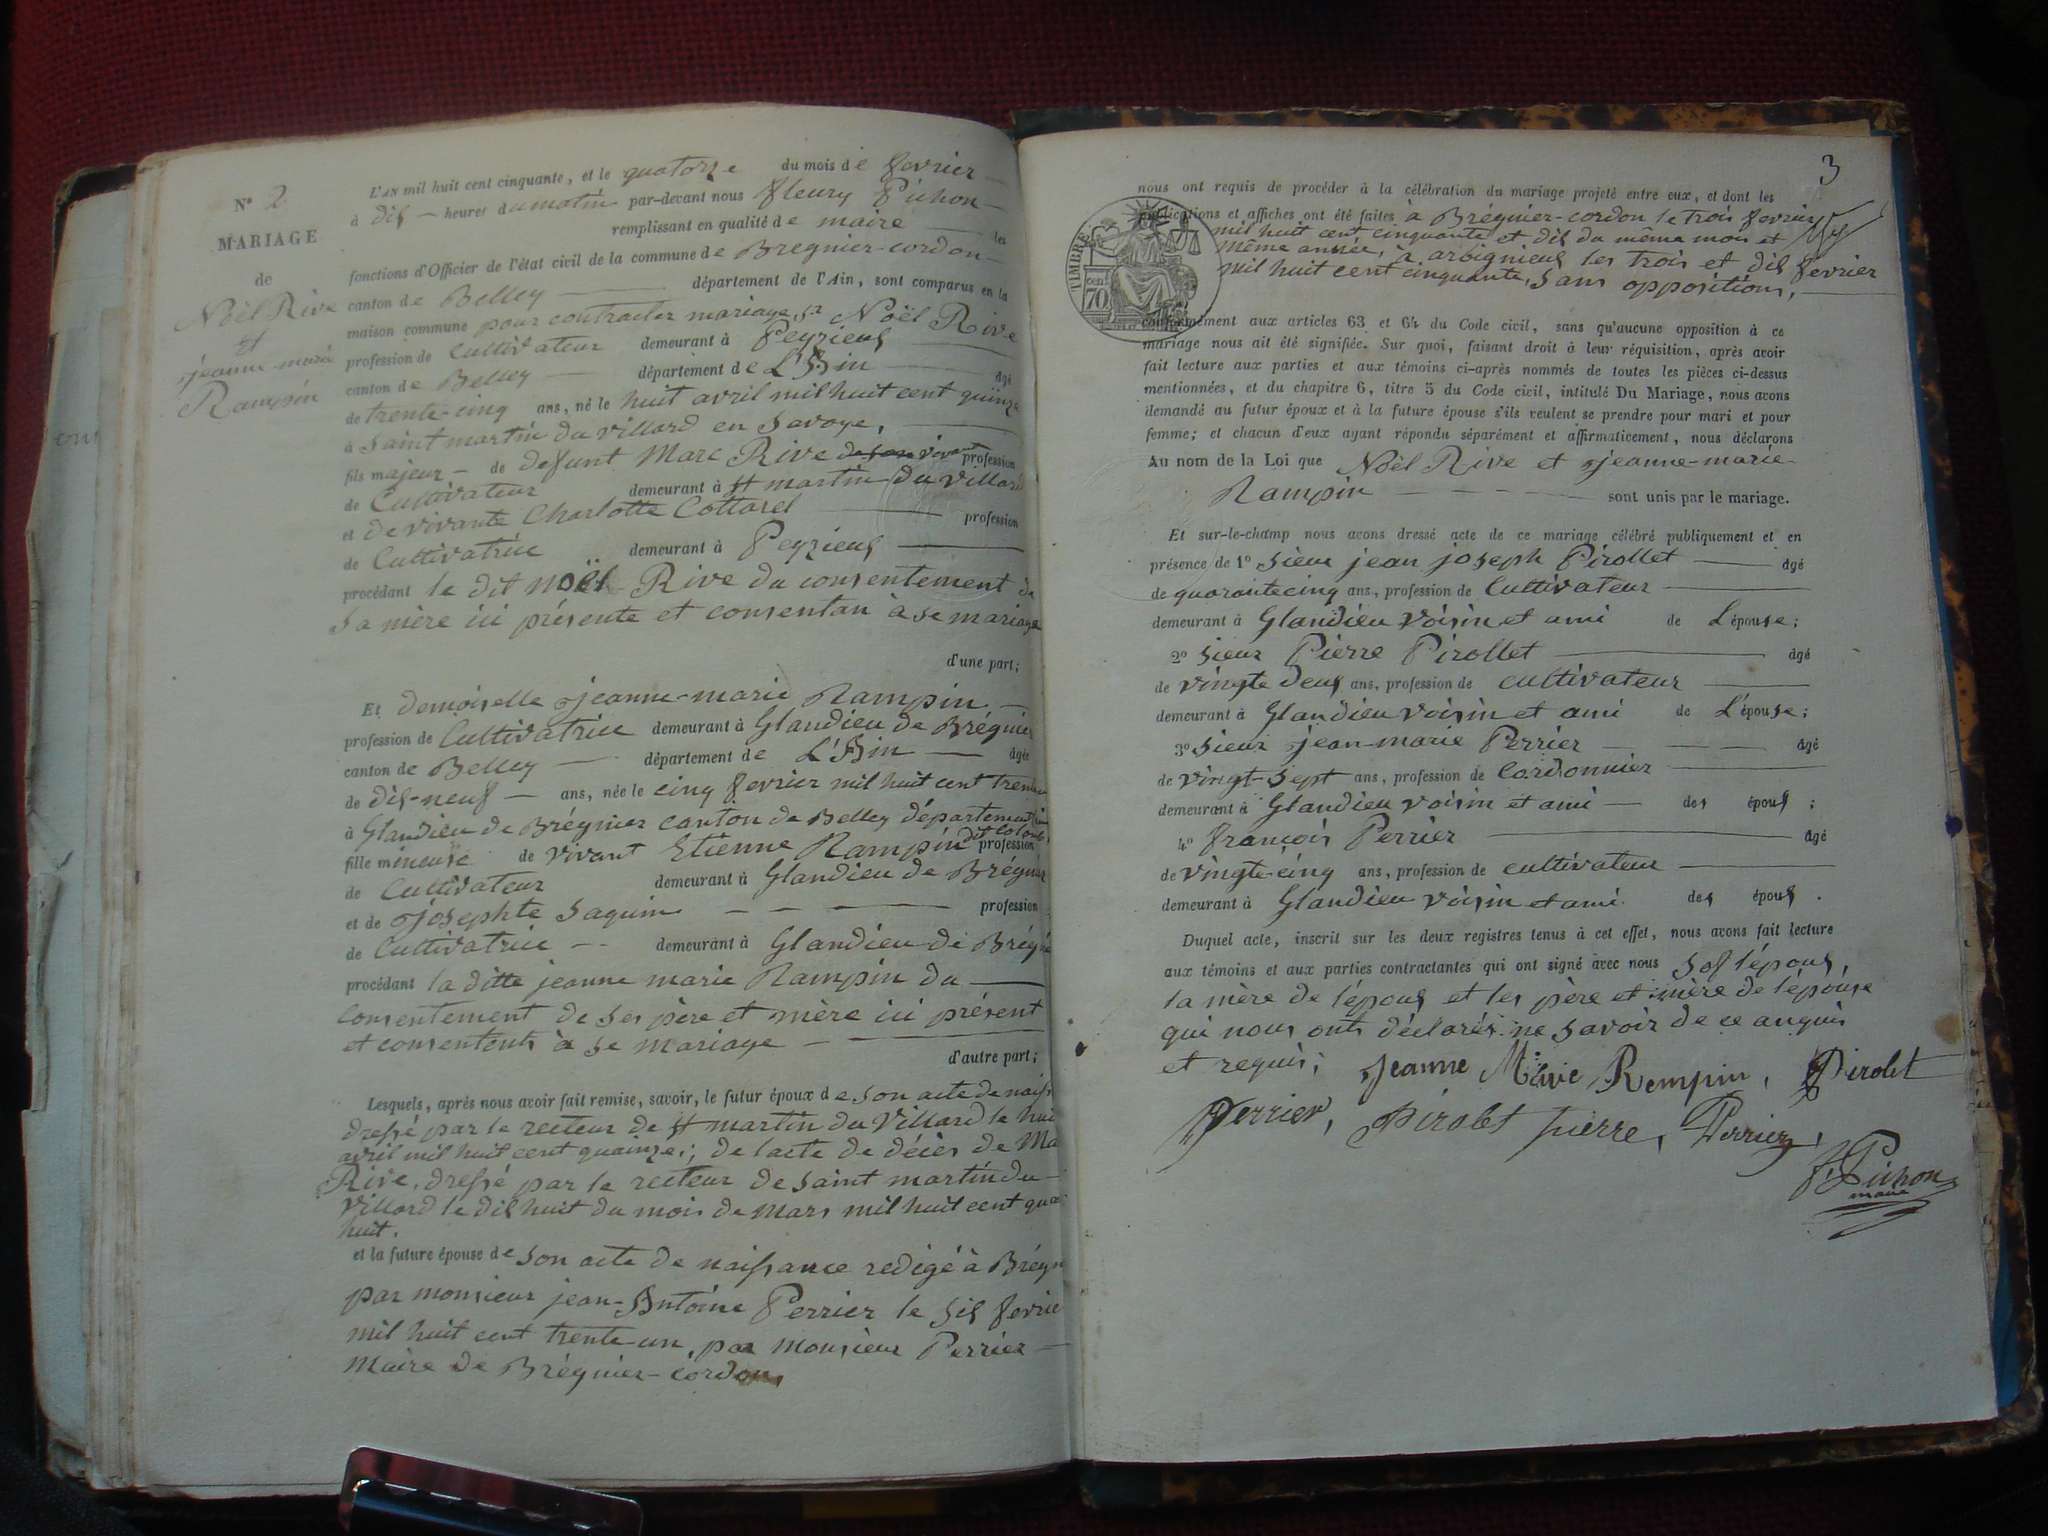 N° 2
MARIAGE
de
Noël Rive
et
jeanne marie
Rampin
L'AN mil huit cent cinquante, et le quatorze du mois de fevrier
à dix heures du matin par-devant nous fleury Pichon
remplissant en qualité de maire les
fonctions d'Officier de l'état civil de la commune de Bregnier-cordon
canton de Belley département de l'Ain, sont comparus en la
maison commune pour contracter mariage, sr Noël Rive
profession de Cultivateur demeurant à Peyzieux
canton de Belley département de L'Ain âgé
de trente-cinq ans, né le huit avril mil huit cent quinze
à Saint martin du villard en Savoye,
fils majeur de defunt Marc Rive de son vivant profession
de Cultivateur demeurant à St martin du villard
et de vivante Charlotte Cottarel profession
de Cultivatrice demeurant à Peyzieux
procédant le dit Noël Rive du consentement de
sa mère ici présente et consentan à se mariage
d'une part;
Et demoiselle jeanne-marie Rampin
profession de Cultivatrice demeurant à Glandieu de Brégnier
canton de Belley département de L'Ain âgée
de dix-neuf ans, née le cinq fevrier mil huit cent trente
à Glandieu de Brégnier canton de Belley département
fille mineuse de vivant Etienne Rampin dit profession
de Cultivateur demeurant à Glandieu de Brégnier
et de josephte Saguin profession
de Cultivatrice demeurant à Glandieu de Brégni
procédant la ditte jeanne marie Rampin du
consentement de ses père et mère ici présent
et consentents à se mariage
d'autre part;
Lesquels, après nous avoir fait remise, savoir, le futur époux de son acte de naiss
dressé par le recteur de St martin du Villard le hui
avril mil huit cent quainze; de lacte de décès de Ma
Rive, dressé par le recteur de Saint martin du
Villard le dix huit du mois de Mars mil huit cent qua
huit.
et la future épouse de son acte de naissance redigé à Brégn
par monsieur jean-Antoine Perrier le six fevrie
mil huit cent trente-un, par monsieur Perrier
Maire de Brégnier-Cordon,
3
nous ont requis de procéder à la célébration du mariage projeté entre eux, et dont les
publications et affiches ont été faites à Brégnier-cordon le trois fevrier
mil huit cent cinquante et dix du même mois et
même année, à arbignieux les trois et dix fevrier
mil huit cent cinquante, sans oppositions,
TIMBRE
70 cen
conformément aux articles 63 et 64 du Code civil, sans qu'aucune opposition à ce
mariage nous ait été signifiée. Sur quoi, faisant droit à leur réquisition, après avoir
fait lecture aux parties et aux témoins ci-après nommés de toutes les pièces ci-dessus
mentionnées, et du chapitre 6, titre 5 du Code civil, intitulé Du Mariage, nous avons
demandé au futur époux et à la future épouse s'ils veulent se prendre pour mari et pour
femme; et chacun d'eux ayant répondu séparément et affirmativement, nous déclarons
Au nom de la Loi que Noël Rive et jeanne-marie
Rampin sont unis par le mariage.
Et sur-le-champ nous avons dressé acte de ce mariage célébré publiquement et en
présence de 1° Sieur jean joseph Pirollet âgé
de quarante cinq ans, profession de Cultivateur
demeurant à Glandieu voisin et ami de L'épouse;
2° Sieur Pierre Pirollet âgé
de vingte deux ans, profession de cultivateur
demeurant à Glandieu voisin et ami de L'épouse;
3° Sieur jean-marie Perrier âgé
de vingt-sept ans, profession de Cordonnier
demeurant à Glandieu voisin et ami des époux;
4° françois Perrier âgé
de vingte-cinq ans, profession de cultivateur
demeurant à Glandieu voisin et ami des époux.
Duquel acte, inscrit sur les deux registres tenus à cet effet, nous avons fait lecture
aux témoins et aux parties contractantes qui ont signé avec nous sof l'époux,
la mère de l'époux et les père et mère de l'épouse
qui nous onts déclarés ne savoir de ce anquis
et requis; Jeanne Marie Rempin, Pirolet
Perrier, Pirolet pierre, Perrier,
f Pichon
maire